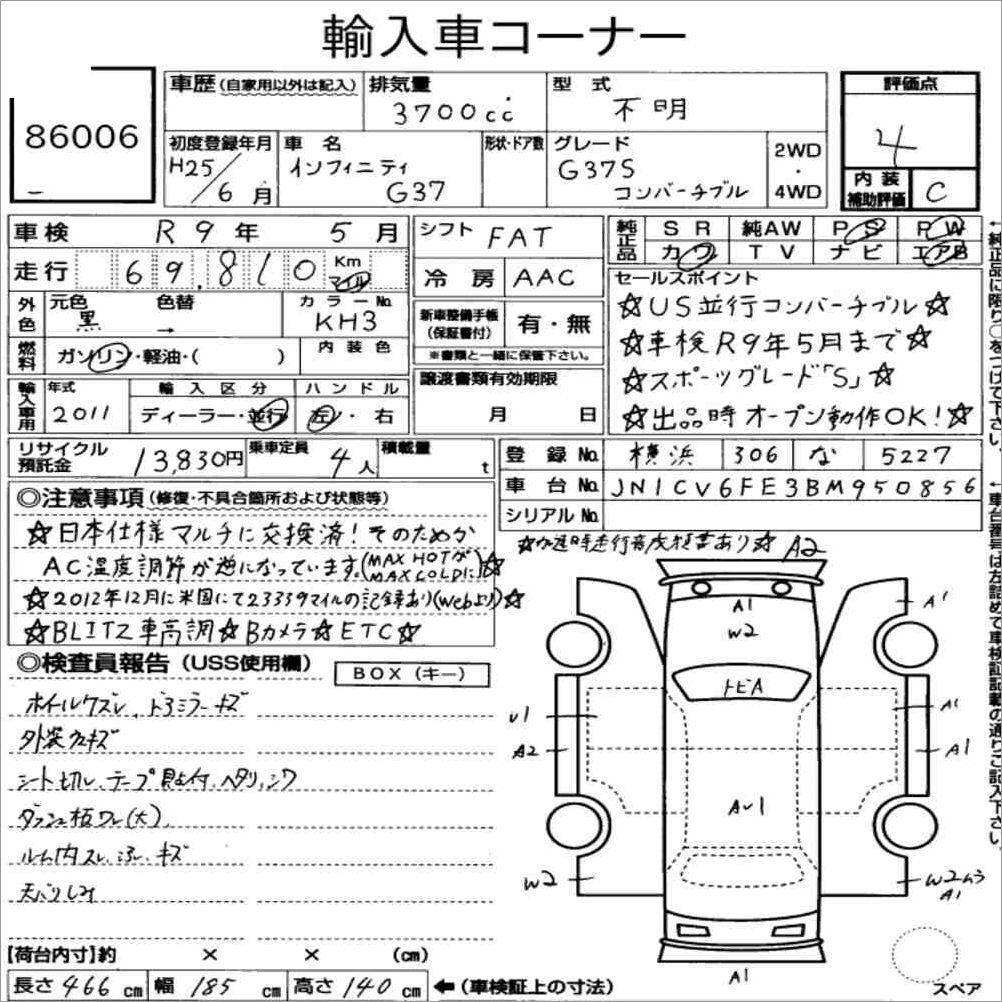 輸入車コーナー
86006
車歴(自家用以外は記入)
排気量
3700cc
型 式
不明
評価点
4
内装補助評価
C
初度登録年月
H25/6月
車 名
インフィニティ
G37
形状・ドア数
グレード
G37S
コンバーチブル
2WD
・
4WD
車検 R9年 5月
シフト FAT
純正品
SR 純AW PS PW
カワ TV ナビ エアB
走行 69,810 Km マイル
冷房 AAC
セールスポイント
☆US並行コンバーチブル☆
☆車検R9年5月まで☆
☆スポーツグレード「S」☆
☆出品時オープン動作OK!☆
外色
元色 黒
色替 →
カラーNo. KH3
新車整備手帳(保証書付)
有・無
※書類と一緒に保管下さい。
燃料
ガソリン・軽油・( )
内装色
譲渡書類有効期限
月 日
輸入車用
年式 2011
輸入区分
ディーラー・並行
ハンドル
左・右
リサイクル預託金 13,830円
乗車定員 4人
積載量 t
登録No. 横浜 306 な 5227
車台No. JN1CV6FE3BM950856
シリアルNo.
◎注意事項(修復・不具合箇所および状態等)
☆日本仕様マルチに交換済!そのためか
AC温度調節が逆になっています。(MAX HOTがMAX COLDに)☆
☆2012年12月に米国にて23339マイルの記録あり(Webより)☆
☆BLITZ車高調☆Bカメラ☆ETC☆
◎検査員報告(USS使用欄)
BOX(キー)
ホイールクズレ、ドアミラーキズ
外装小キズ
シート切レ、テープ貼付、ヘタリ、シワ
ダッシュ板ワレ(大)、
ルーム内スレ、汚レ、キズ
天バリしみ
A2
A1
W2
トビA
A1
U1
A2
A1
A1
AU1
W2
W2ムラ
A1
A1
スペア
【荷台内寸】約 × × (cm)
長さ 466cm 幅 185cm 高さ 140cm ←(車検証上の寸法)
←純正品に限り○をつけて下さい。
←車台番号は左詰めで車検証記載の通りご記入下さい。